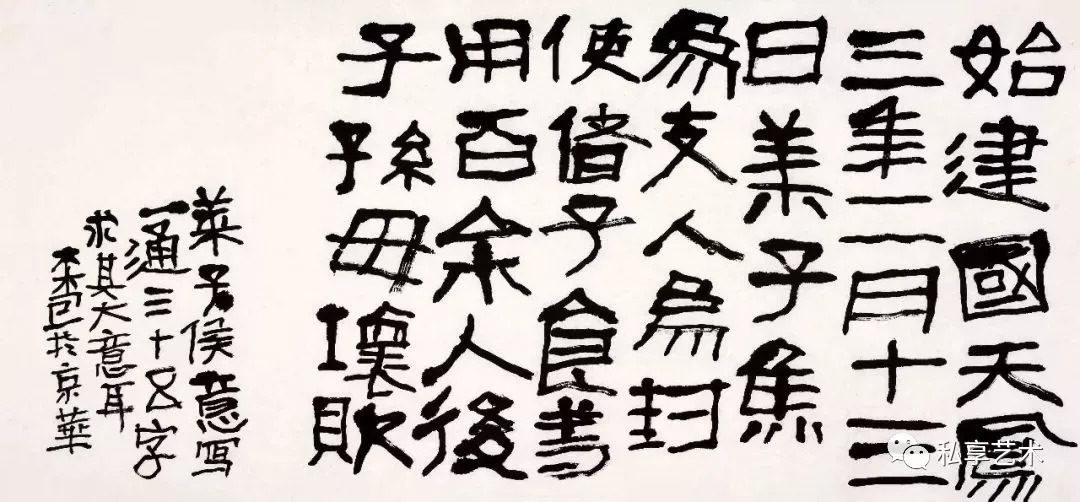 始建國天鳳
三年二月十三
日萊子侯
為支人為封
使偖子食等
用百余人後
子孫毋壞敗
萊子侯意写
一通三十五字
求其大意耳
於京華
私享艺术